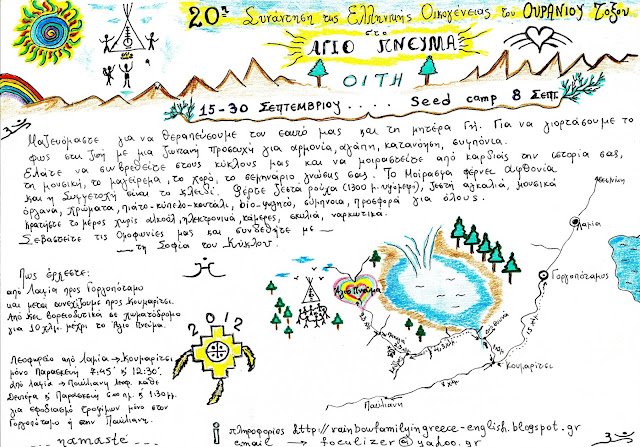 20η Συνάντηση της Ελληνικής Οικογένειας του ΟΥΡΑΝΙΟΥ Τόξου
στο
ΑΓΙΟ ΠΝΕΥΜΑ
ΟΙΤΗ
15-30 Σεπτεμβρίου..... Seed camp 8 Σεπτ.
Μαζευόμαστε για να θεραπεύσουμε τον εαυτό μας και τη μητέρα Γη. Για να γιορτάσουμε το
φως στη ζωή με μια ζωντανή προσευχή για αρμονία, αγάπη, κατανόηση, ευγνωσία.
Ελάτε να συνβρεθείτε στους κύκλους μας και να μοιραστείτε από καρδιάς την ιστορία σας,
τη μουσική, το μαγείρεμα, το χορό, το σεμινάριο γνώσεως σας. Το Μοίρασμα φέρνει Αφθονία
και η Συμμετοχή είναι το κλειδί. Φέρτε ζεστά ρούχα (1300 μ. υψόμετρο), ζεστή αγκαλιά, μουσικά
όργανα, χρώματα, πιάτο-κύπελο-κουτάλι, βιο-φιλητό, υπνόσακο, προσφορά για όλους.
Κρατήστε το μέρος χωρίς αλκοόλ, ηλεκτρονικά, κάμερες, σκυλιά, ναρκωτικά.
Σεβαστείτε τις Ομοφωνίες μας και συνδεθήτε με —
— τη Σοφία του Κύκλου.
Πως έρχεστε:
από Λαμία προς Γοργοπόταμο
και μετά συνεχίζουμε προς Κουμαρίτσι.
Από κει βορειοδυτικά σε χωματόδρομο
για 10 χλμ. μέχρι το Άγιο Πνεύμα.
Λεοφωρείο από Λαμία → Κουμαρίτσι
μόνο Παρασκευή 7:45' ή 12:30'.
από Λαμία → Παύλιανη λεωφ. κάθε
Δευτέρα ή Παρασκευή 6 πμ. ή 1:30 μμ.
για εφοδιασμό τροφίμων μόνο στον
Γοργοπόταμο ή στην Παύλιανη.
namasté
2012
Άγιο Πνεύμα
Λαμία
Γοργοπόταμος
Κουμαρίτσι
Παύλιανη
i πληροφορίες http://rainbowfamilyingreece-english.blogspot.gr
email → foculizer@yahoo.gr